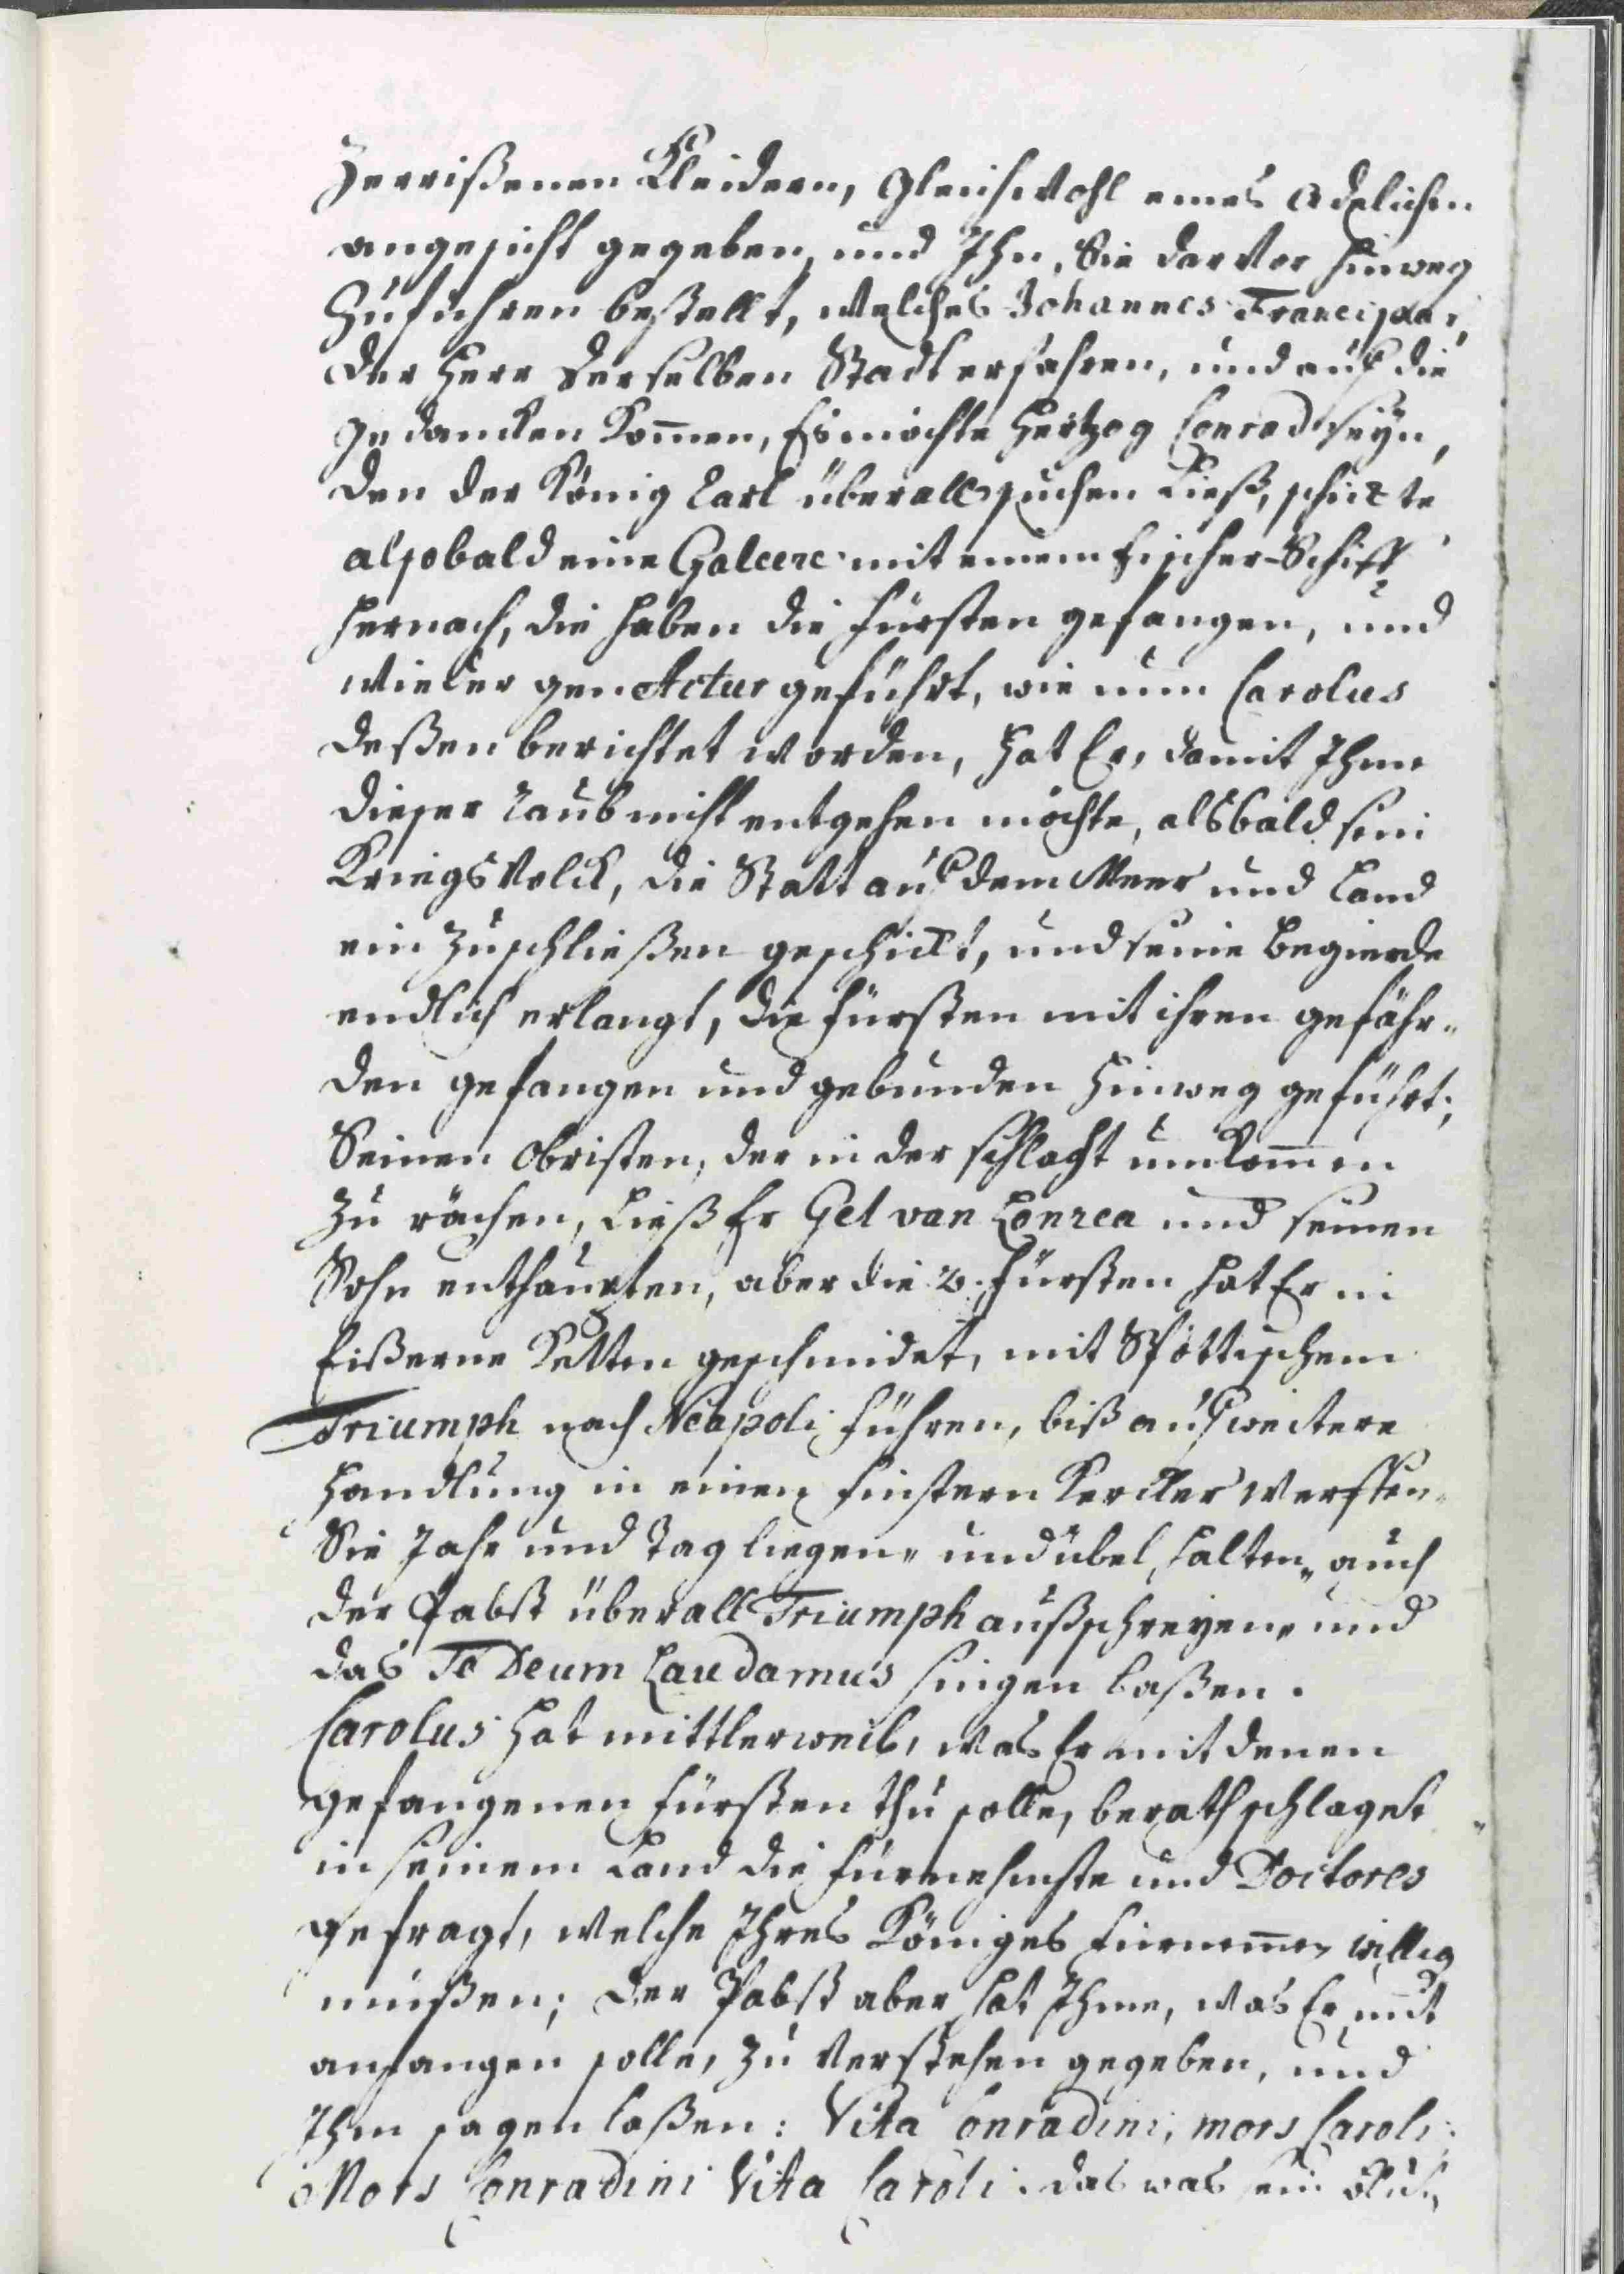 Zerrißenen Kleidern, gleichwohl eines Adelichen
angesicht gegeben, und Ihn, Sie darvor hinweg
Zuführen bestellt, welches Johannes Francipan,
der Herr derselben Stadt erfahren, und auf die
gedancken kom̅en, Es möchte Hertzog Conrad seÿn,
den der König Carl überall suchen ließ, schickte
alsobald eine Galeere mit einem Fischer-Schiff
hernach, die haben die Fürsten gefangen, und
wieder gen Actur geführt, wie nun Carolus
deßen berichtet worden, hat Er, damit Ihme
dieser Raub nicht entgehen möchte, alsbald sein
Kriegs Volck, die Statt auf dem Meer und Land
ein zuschließen geschickt, und seine Begierde
endlich erlangt, die Fürsten mit ihren gefähr„
den gefangen und gebunden hinweg geführt;
Seinen Obristen, der in der Schlacht umkom̅en
zu rächen, ließ Er Gel van Lonrea und seinen
Sohn enthaupten, aber die 2. Fürsten hat Er in
Eißerne Ketten geschmidet, mit Spöttischem
Triumph nach Neapoli führen, biß auf weitere
Handlung in einen finstern Kercker werffen„
Sie Jahr und Tag liegen„ und übel halten„ auch
der Pabst überall Triumph außschreyen„ und
das Te Deum Laudamus singen laßen.
Carolus hat mittlerweil, was Er mit denen
gefangenen Fürsten thu solle, berathschlaget
in seinem Land die Fürnehmste und Doctores
gefragt, welche Ihres Königes Fürnem̅en willig
müßen; der Pabst aber hat Ihme, was Er mit
anfangen solle, zu verstehen gegeben, und
Ihm sagen laßen: Vita Conradini, mors Caroli;
Mors Conradini Vita Caroli. das was ein